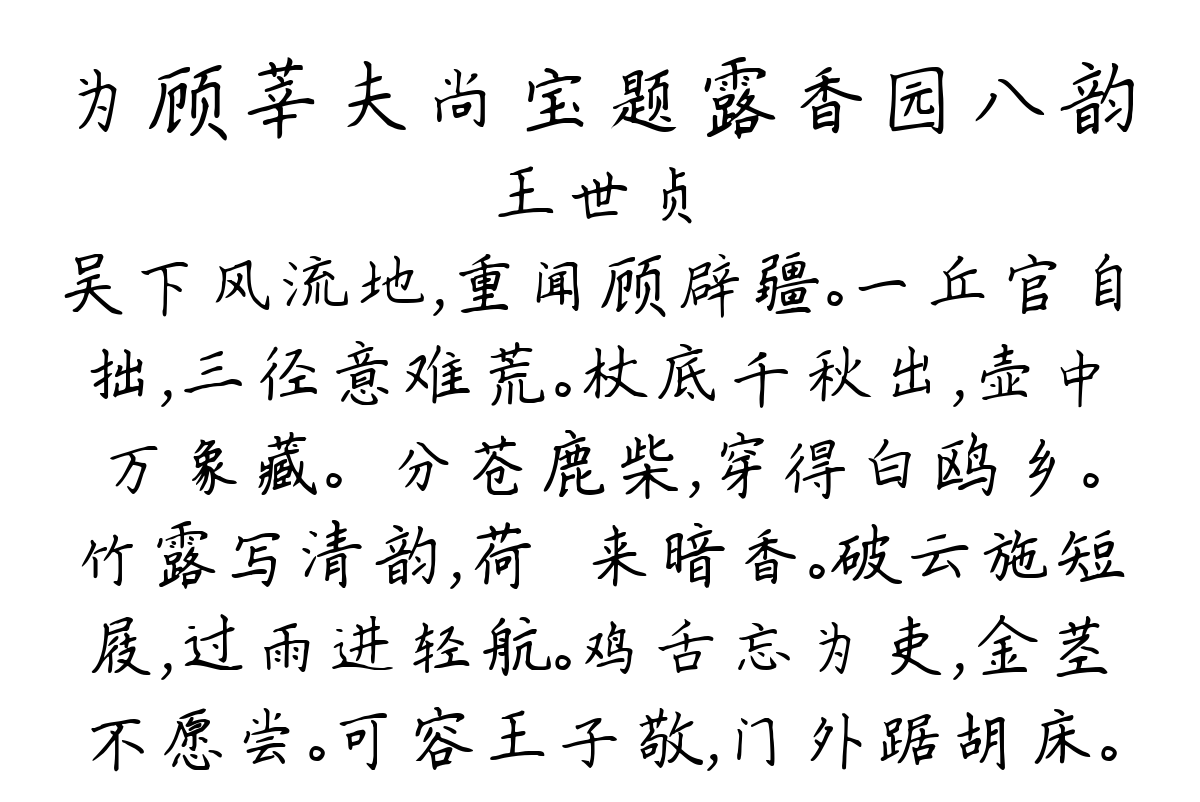 为顾莘夫尚宝题露香园八韵
王世贞
吴下风流地,重闻顾辟疆。一丘官自
拙,三径意难荒。杖底千秋出,壶中
万象藏。分苍鹿柴,穿得白鸥乡。
竹露写清韵,荷 来暗香。破云施短
屐,过雨进轻航。鸡舌忘为吏,金茎
不愿尝。可容王子敬,门外踞胡床。